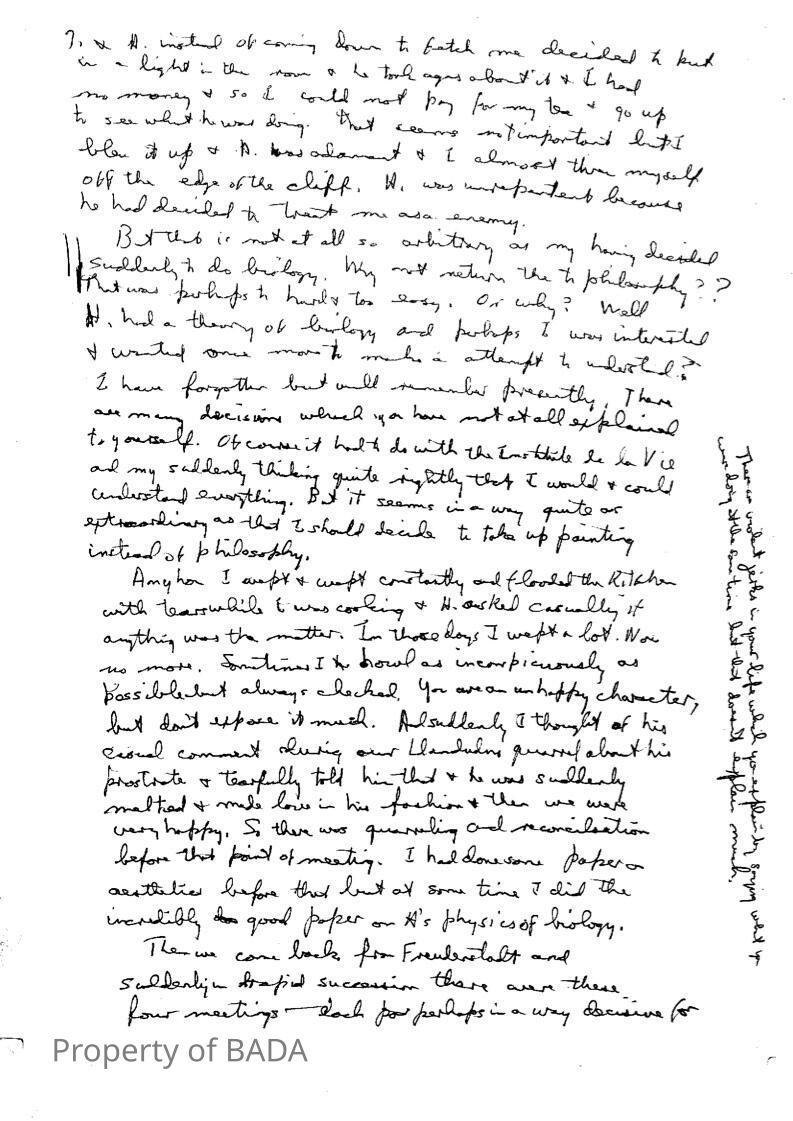 7. & H. instead of coming down to fetch me decided to put
in a light in the room & he took ages about it & I had
no money & so I could not pay for my tea & go up
to see what he was doing. That seems not important but I
blew it up & H. was adamant & I almost threw myself
off the edge of the cliff. H. was unrepentent because
he had decided to treat me as a enemy.
But that is not at all so arbitrary as my having decided
suddenly to do biology. Why not return the to philosophy??
That was perhaps to hard & too easy. Or why? Well
H. had a theory of biology and perhaps I was interested
& wanted once more to make a attempt to understand?
I have forgotten but will remember presently. There
are many decisions which you have not at all explained
to yourself. Of course it had to do with the Institute de la Vie
and my suddenly thinking quite rightly that I would & could
understand everything. But it seems in a way quite as
extraordinary as that I should decide to take up painting
instead of philosophy.
Anyhow I wept & wept constantly and flooded the Kitchen
with tears while I was cooking & H. asked casually if
anything was the matter. In those days I wept a lot. Now
no more. Sometimes I howl as inconspicuously as
possible but always checked. You are an unhappy character,
but don't expose it much. And suddenly I thought of his
casual comment during our Llandudno quarrel about his
prostrate & tearfully told him that & he was suddenly
melted & made love in his fashion & then we were
very happy. So there was quarreling and reconciliation
before that point of meeting. I had done some paper on
aesthetics before that but at some time I did the
incredibly good paper on H's physics of biology.
Then we came back from Freudenstadt and
suddenly in rapid succession there were these
four meetings — each perhaps in a way decisive for
There are violent jerks in your life which you explain by saying what you
were doing at the same time but that doesn't explain much.
Property of BADA